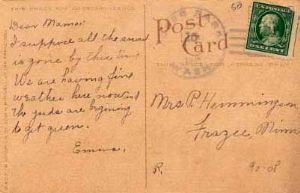 Post
Card
Dear Mama:
I suppose all the snow
is gone by this time
We are having fine
weather here now
the yards are beginning
to get green.
Emma.
Mrs P. Hemmingsen
Frazee Minn
R.
90-08